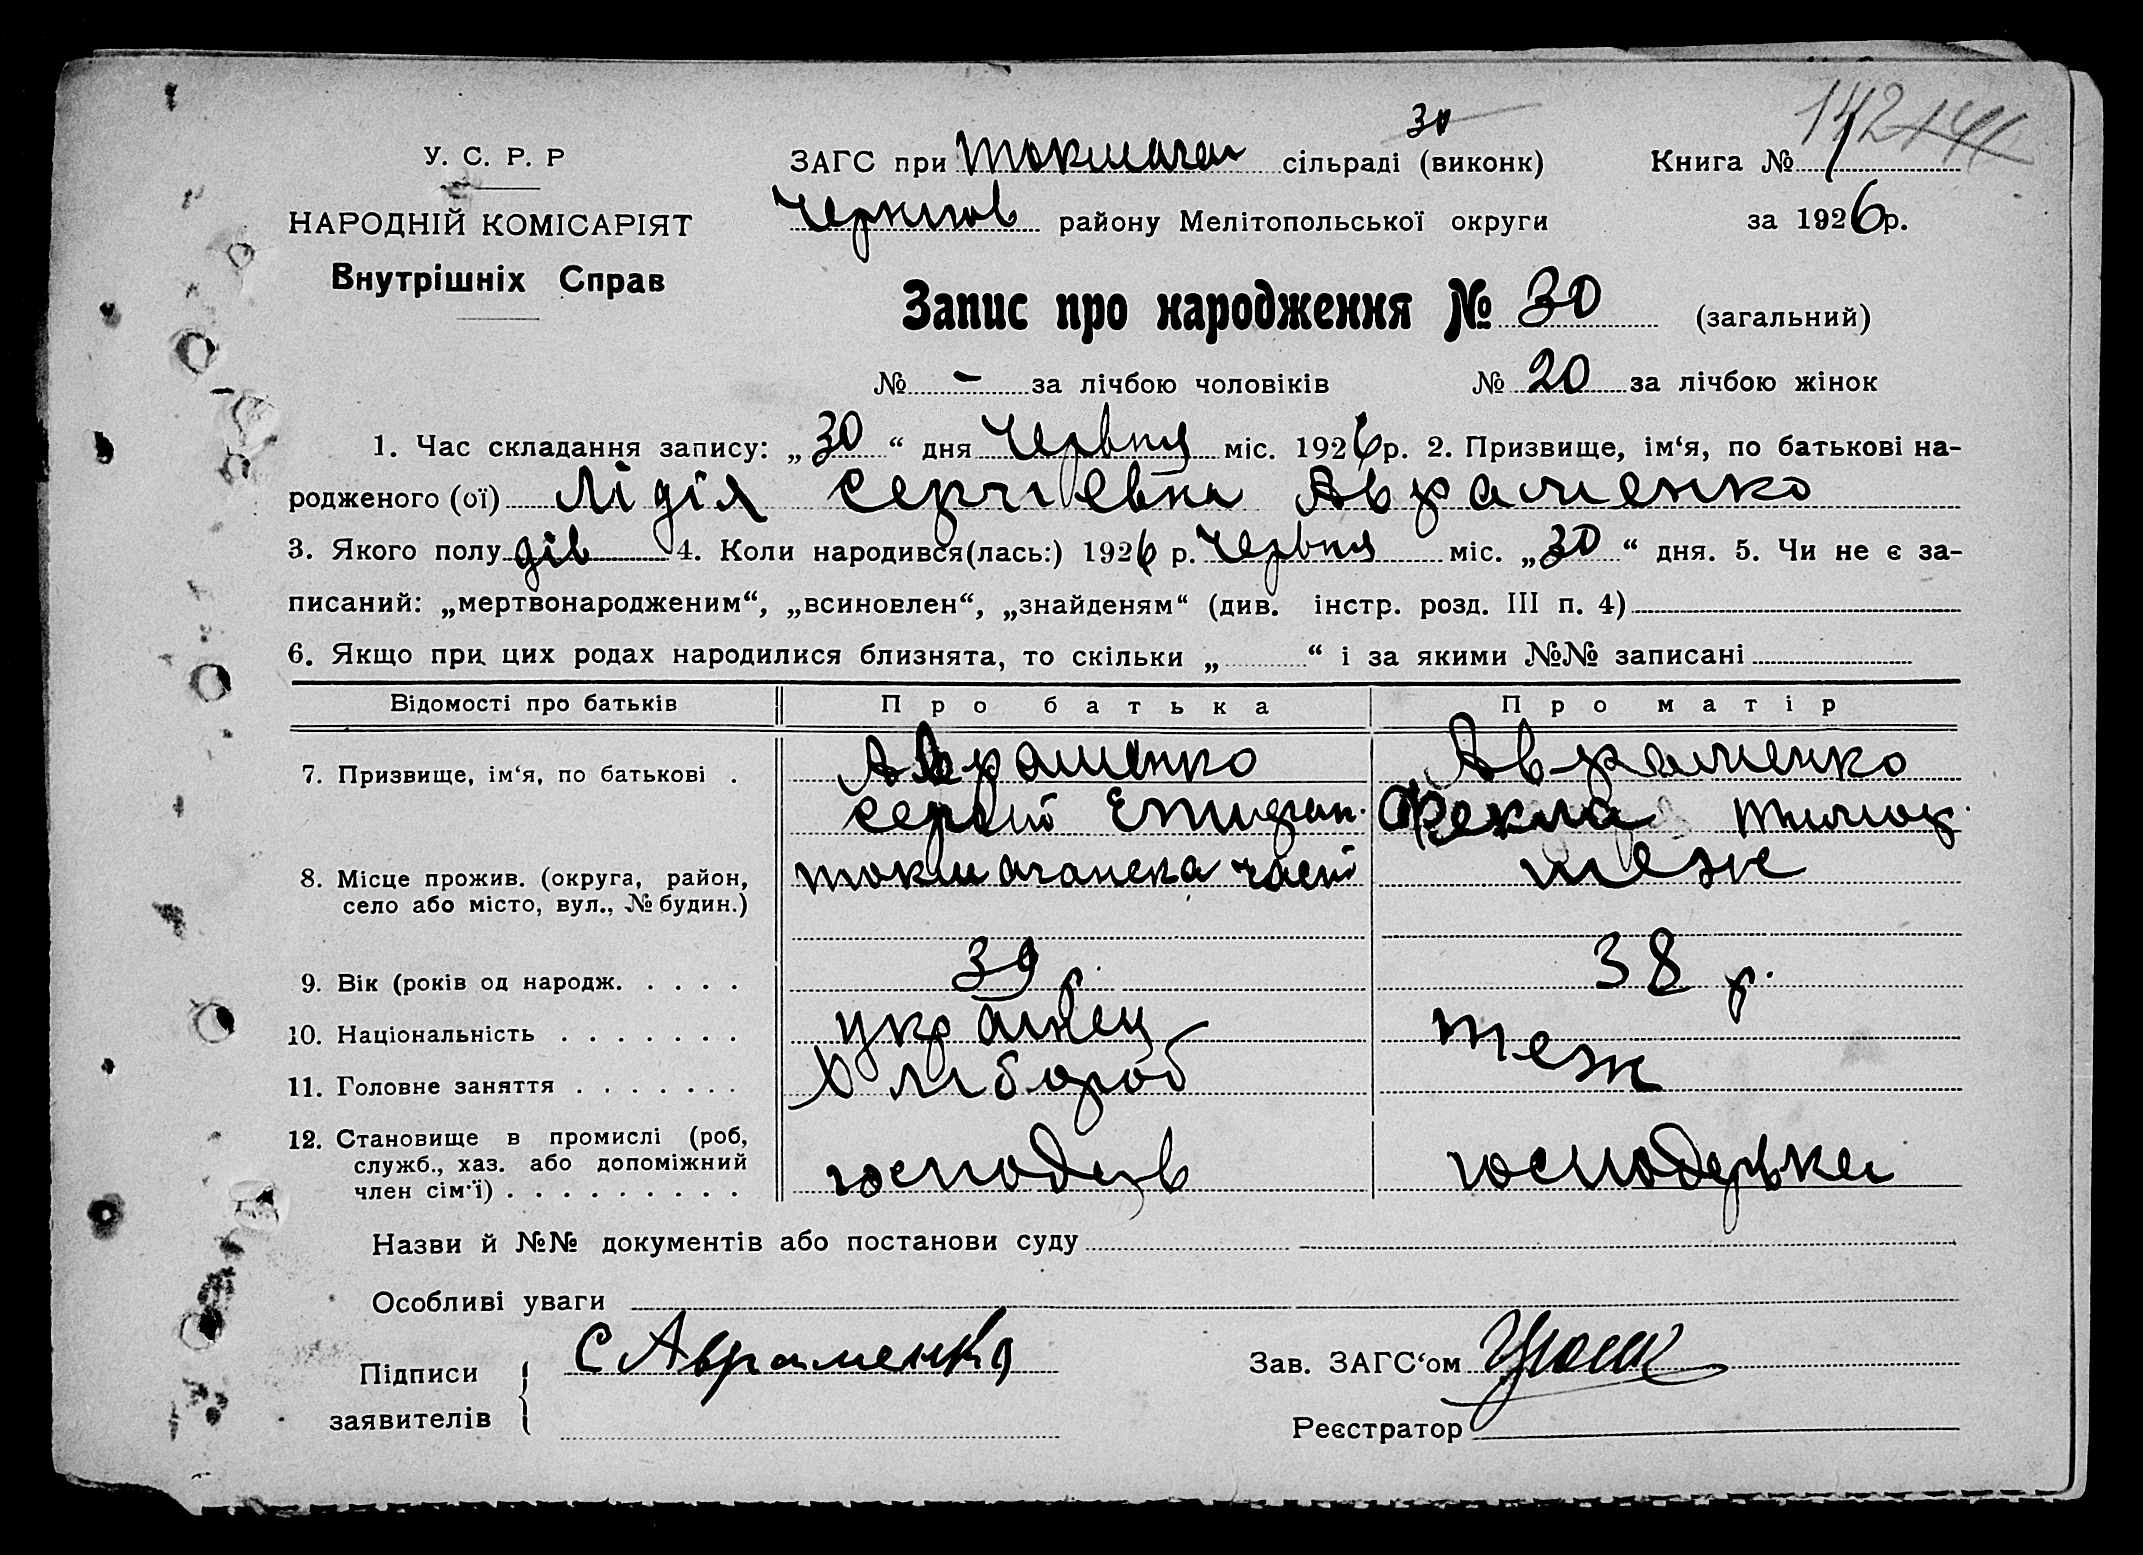 142 144
У. С. Р. Р
НАРОДНІЙ КОМІСАРІЯТ
Внутрішніх Справ
30
ЗАГС при Токмачан сільраді (виконк)
Чернигов району Мелітопольської округи
Книга № 1
за 1926 р.
Запис про народження № 30 (загальний)
№ - за лічбою чоловіків № 20 за лічбою жінок
1. Час складання запису: „30“ дня Червня міс. 1926 р. 2. Призвище, ім‘я, по батькові на-
родженого (ої) Лідія Сергієвна Авраменко
3. Якого полу дів 4. Коли народився(лась:) 1926 р. Червня міс. „30“ дня. 5. Чи не є за-
писаний: „мертвонародженим“, „всиновлен“, „знайденям“ (див. інстр. розд. III п. 4)
6. Якщо при цих родах народилися близнята, то скільки „ “ і за якими №№ записані
Відомості про батьків Про батька Про матір
7. Призвище, ім‘я, по батькові . Авраменко Авраменко
Сергій Фекла Тимоф.
8. Місце прожив. (округа, район, село або місто, вул., № будин.) теж
9. Вік (років од народж. . . . . 39 р. 38 р.
10. Національність . . . . . . . українец теж
11. Головне заняття . . . . . . . Хлібороб
12. Становище в промислі (роб, служб., хаз. або допоміжний член сім‘ї) . . . . . . . . . господарь господарька
Назви й №№ документів або постанови суду
Особливі уваги
Підписи заявителів С Авраменко
Зав. ЗАГС‘ом
Реєстратор